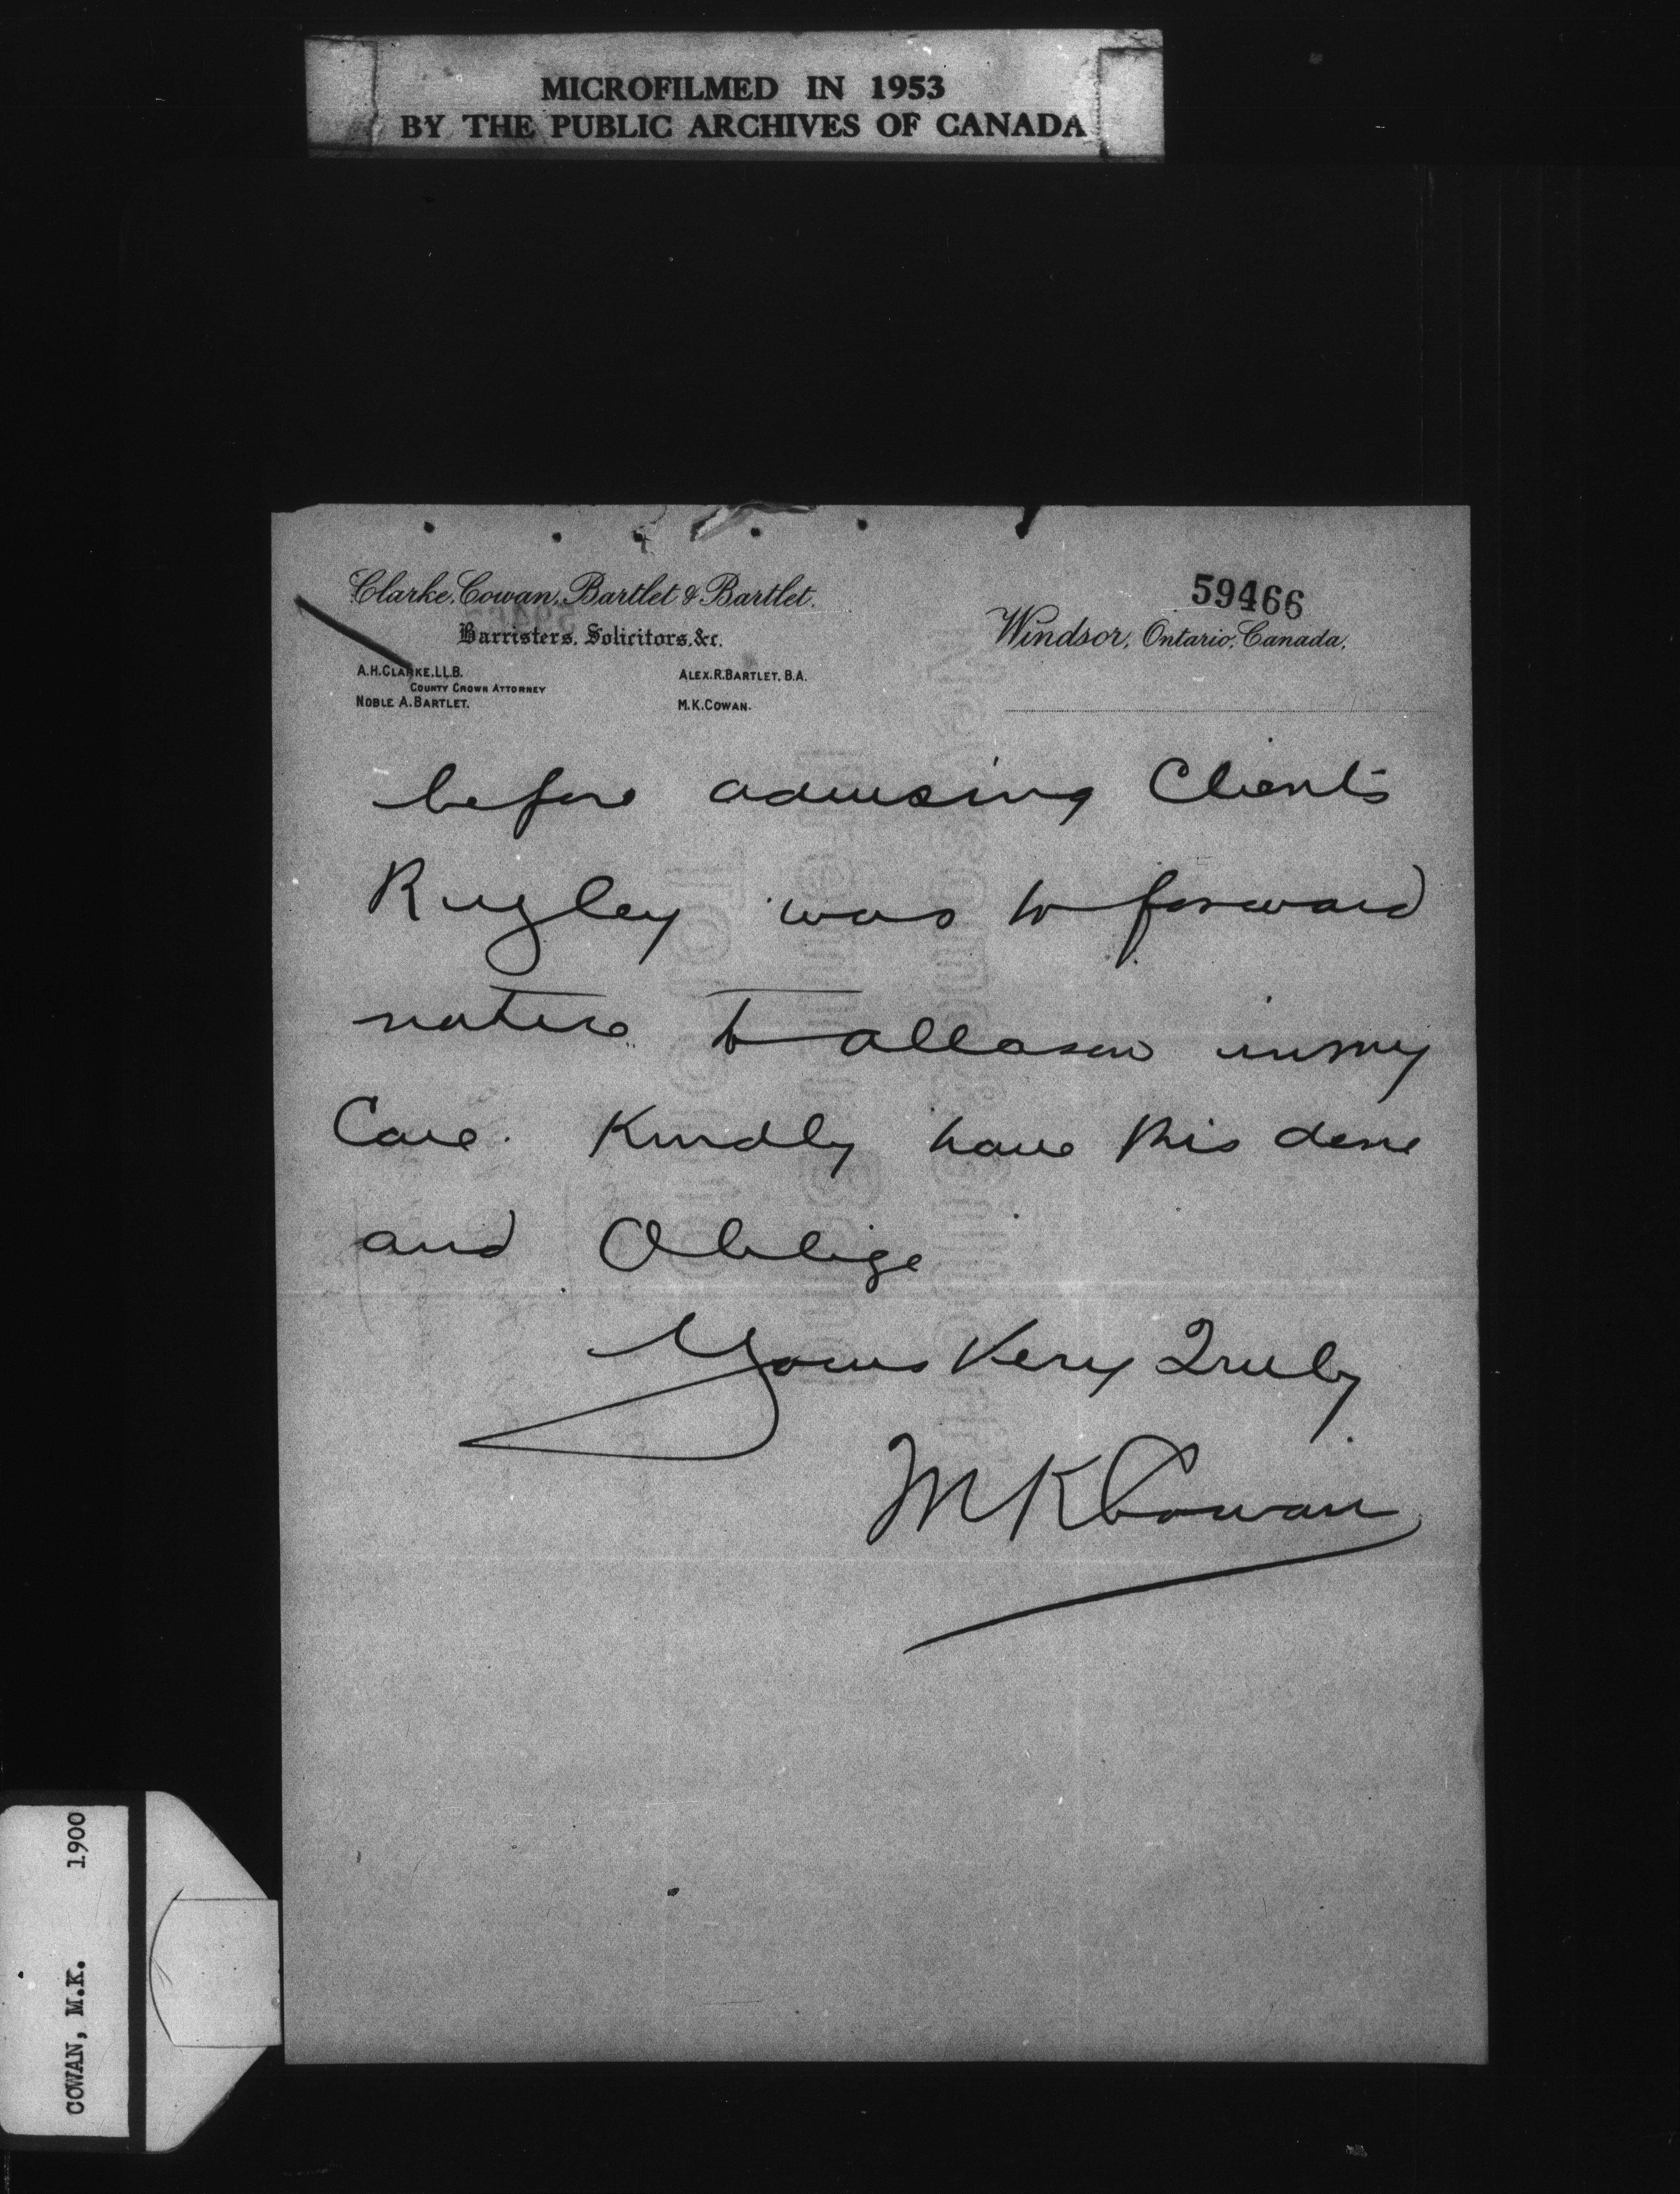 MICROFILMED IN 1953
BY THE PUBLIC ARCHIVES OF CANADA
59466
Clarke, Cowan, Bartlet & Bartlet.
Barristers, Solicitors, &c.
Windsor, Ontario, Canada,
A.H. CLARKE, LL.B. ALEX. R. BARTLET, B.A.
COUNTY CROWN ATTORNEY
NOBLE A. BARTLET. M.K. COWAN.
before advising Clients
Rugley was to forward
notice to in my
Care. Kindly have this done
and Oblige
Yours Very Truly
M K Cowan
COWAN, M.K. 1900